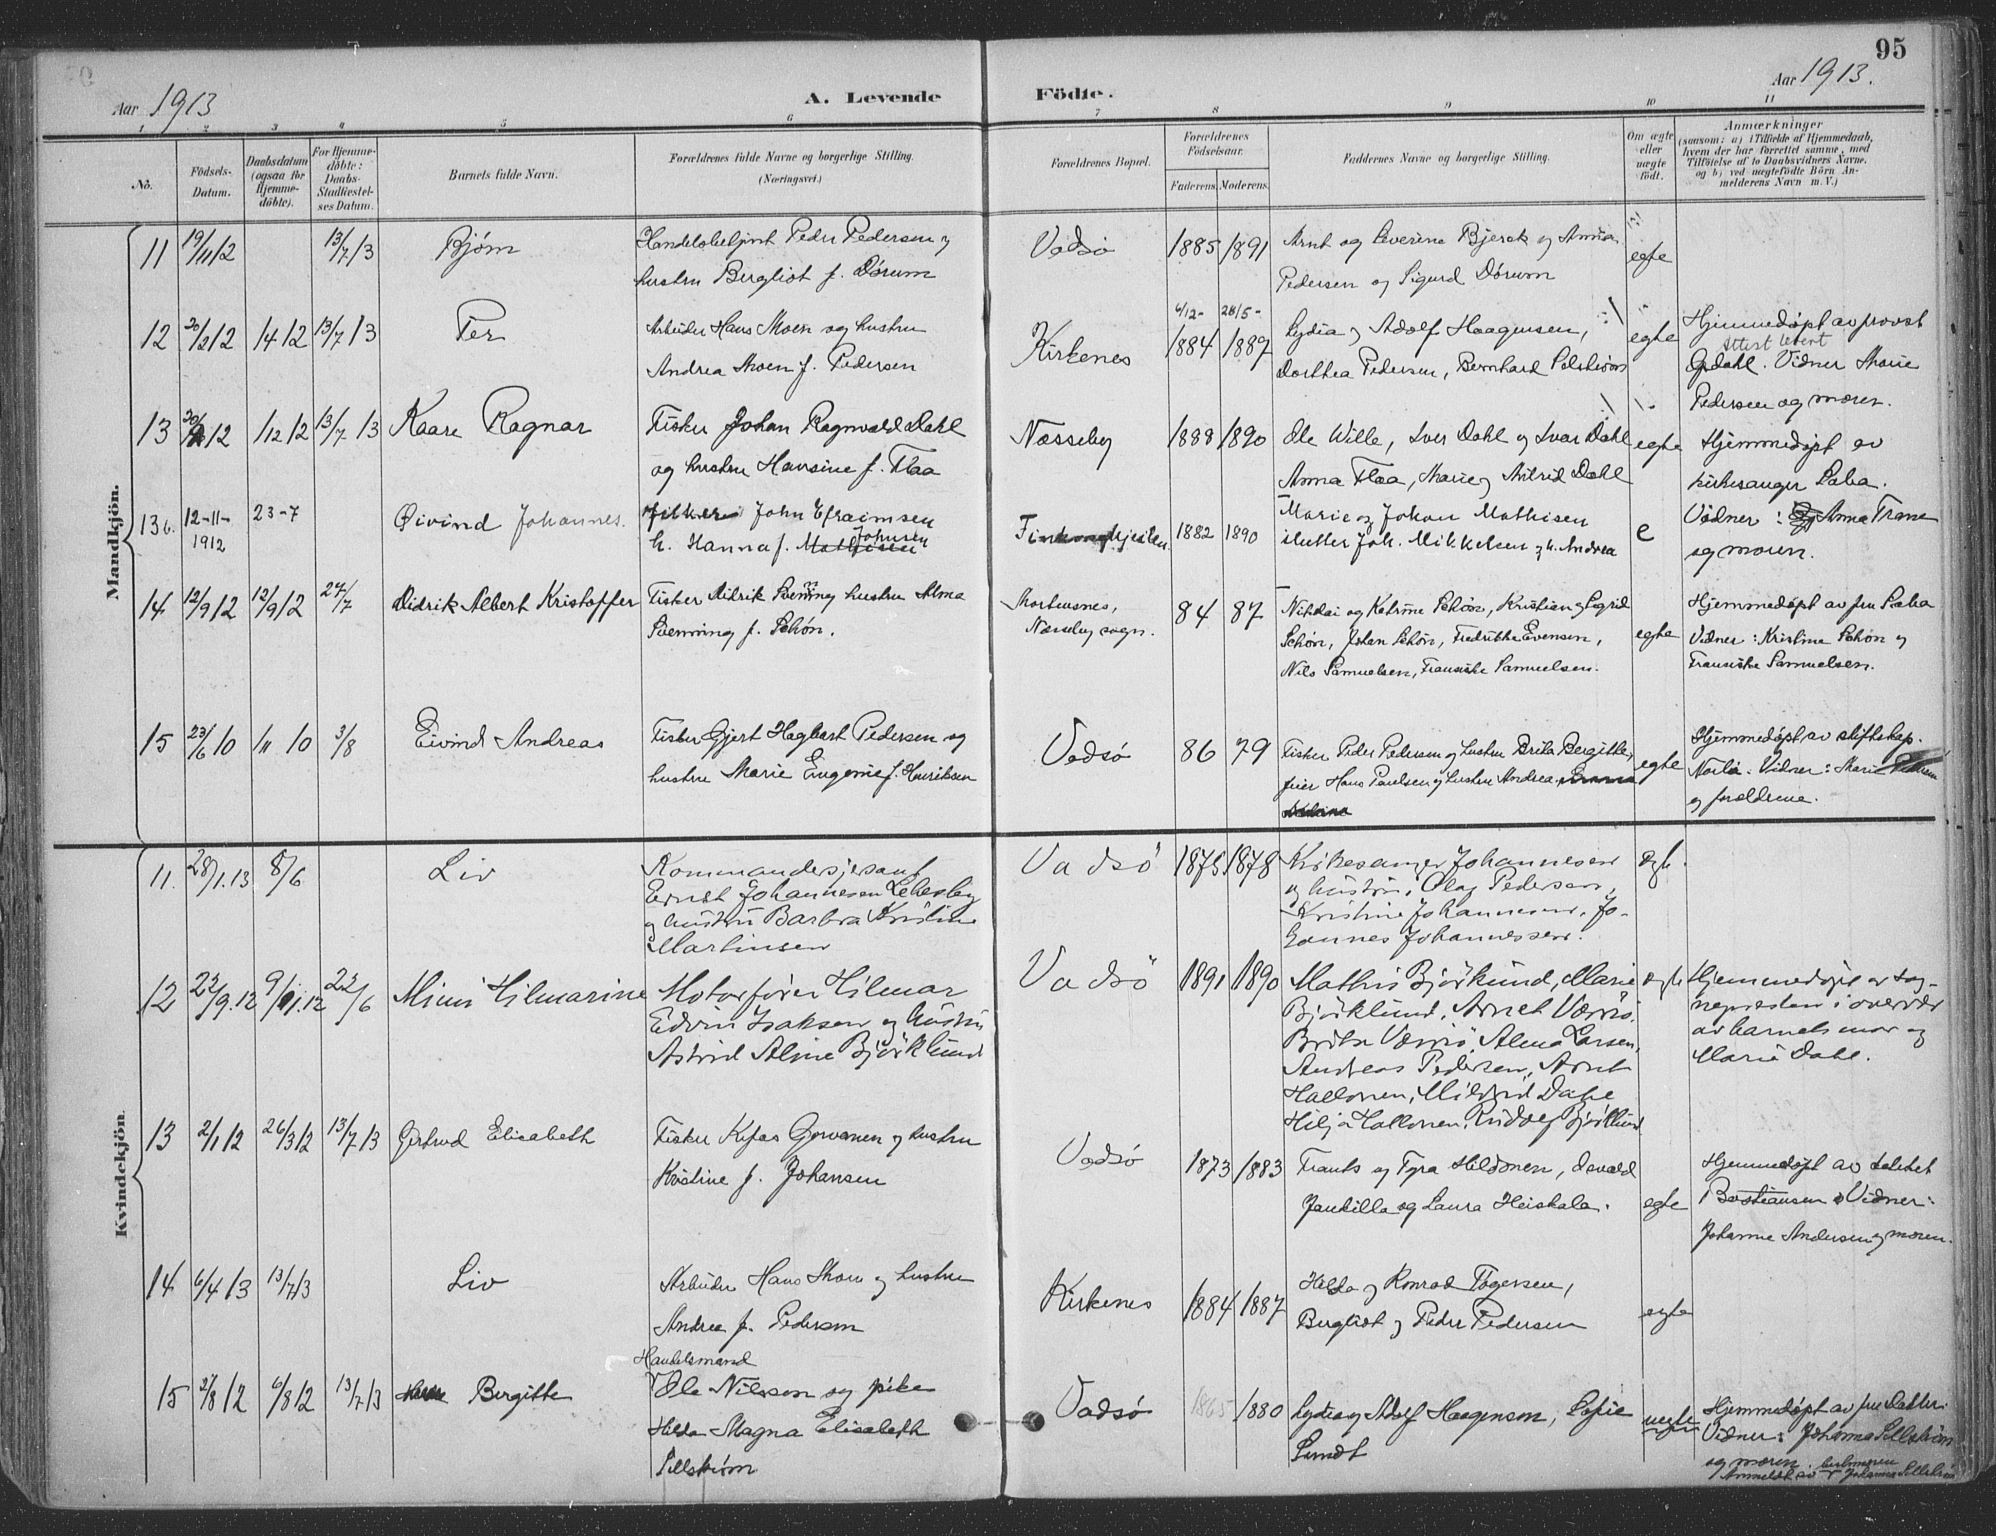 95
Aar 1913
A. Levende Födte.
Aar 1913.
1 2 3 4 5 6 7 8 9 10 11
No.
Födsels-
Datum.
Daabsdatum
(ogsaa for
Hjemme-
döbte).
For Hjemme-
döbte:
Daabs-
Stadfæstel-
ses Datum.
Barnets fulde Navn.
Forældrenes fulde Navne og borgerlige Stilling.
(Næringsvei.)
Forældrenes Bopæl.
Forældrenes
Födselsaar.
Faderens. Moderens.
Faddernes Navne og borgerlige Stilling.
Om ægte
eller
uægte
födt.
Anmærkninger
(saasom: a) i Tilfælde af Hjemmedaab,
hvem der har forrettet samme, med
Tilföielse af to Daabsvidners Navne.
og b) ved uægtefödte Börn An-
melderens Navn m. V.)
Mandkjön.
11 19/11 12 13/7 13 Bjørn
Peder Pedersen og
hustru Bergliot f. Dørum
Vadsø 1885 1891
Arnt og Severine Bjerck og Anna
Pedersen og Sigurd Dørum
egte
12 20/2 12 14 12 13/7 13 Per
Arbeider Hans Moen og hustru
Andrea Moen f. Pedersen
Kirkenes 6/12- 1884 28/5- 1887
Lydia og Adolf Haagensen,
Dorthea Pedersen, Bernhard
egte
Hjemmedøpt av provst
Opdahl. Vidner Marie
Pedersen og moren.
13 12 1/12 12 13/7 13 Kaare Ragnar
Fisker Johan Ragnvald Dahl
og hustru Hansine f. Flaa
Næsseby 1888 1890
Ole Wille, Iver Dahl og Ivar Dahl
Anna Flaa, Marie og Astrid Dahl
egte
Hjemmedøpt av
kirkesanger Saba.
Vidner: Anna Trane
og moren.
13b. 12-11-
1912
23-7
Øivind Johannes.
Fisker John Efraimsen
h. Hanna f. Mathisen Johnsen
1882 1890
Marie og Johan Mathisen
Joh. Mikkelsen og h. Andrea
e
14 12/9 12 13/9 12 27/7
Didrik Albert Kristoffer
Fisker Didrik Svenning hustru Alma
Svenning f. Schøn.
Mortensnes,
Næsseby sogn.
84 87
Nikolai og Katrine Schøn, Kristian og Sigrid
Schøn, Johan Schøn, Fredrikke Evensen,
Nils Samuelsen, Fransiske Samuelsen.
egte
Hjemmedøpt av fru Saba
Vidner: Kristine Schøn og
Fransiske Samuelsen.
15 23/6 10 1/11 10 3/8
Eivind Andreas
Fisker Gjert Hagbart Pedersen og
hustru Marie Eugenie f. Henriksen
Vadsø 86 79
Fisker Peder Pedersen og hustru Berika Bergitte,
feier Hans Paulsen og hustru Andrea,
egte
Hjemmedøpt av stiftskap.
Vidner: Marie Pedersen
og forældrene.
Kvindekjön.
11. 28/1.13 8/6 Liv
Kommandersjersant
Ernst Johannesen Lebesby
og hustru Barbra Kristine
Martinsen
Vadsö 1875 1878
Kirkesanger Johannesen
og hustru, Olaf Pedersen,
Kristine Johannesen, Jo-
hannes Johannessen.
egte.
12 22/9.12 9/11.12 22/6
Mimi Hilmarine
Motorfører Hilmar
Edvin Isaksen og hustru
Astrid Aline Björklund
Vadsö 1891 1890
Mathis Björklund, Marie
Björklund, Arnet Værriö,
Brita Værriö, Alma Larsen,
Andreas Pedersen, Arnt
Hallonen, Mildrid Dahl
Hilja Hallonen, Rudolf Björklund
egte
Hjemmedøpt av sog-
nepresten i overvær
av barnets mor og
Marie Dahl.
13 2/1 12 26/3 12 13/7 13
Gertrud Elisabeth
Fisker Kefas Gorvanen og hustru
Kristine f. Johansen
Vadsø 1873 1883
Frants og Tyra Hildonen, Osvald
Jankilla og Laura Heiskala.
egte
Hjemmedøpt av
Bastiansen Vidner:
Johanne Andersen og moren.
14 6/4 13 13/7 13 Liv
Arbeider Hans Moen og hustru
Andrea f. Pedersen
Kirkenes 1884 1887
Hilda og Konrad Togersen,
Bergliot og Peder Pedersen
egte
15 2/8 12 6/8 12 13/7 13 Bergitte
Handelsmand
Ole Nilssen og pike
Hilda Magna Elisabeth
Sellstrøm
Vadsø 1865 1880
Lydia og Adolf Haagensen, Sofie
Lundt
uegte
Hjemmedøpt av fru
Vidner: Johanna Sellstrøm
og moren.
Anmeldt av Johanna Sellstrøm